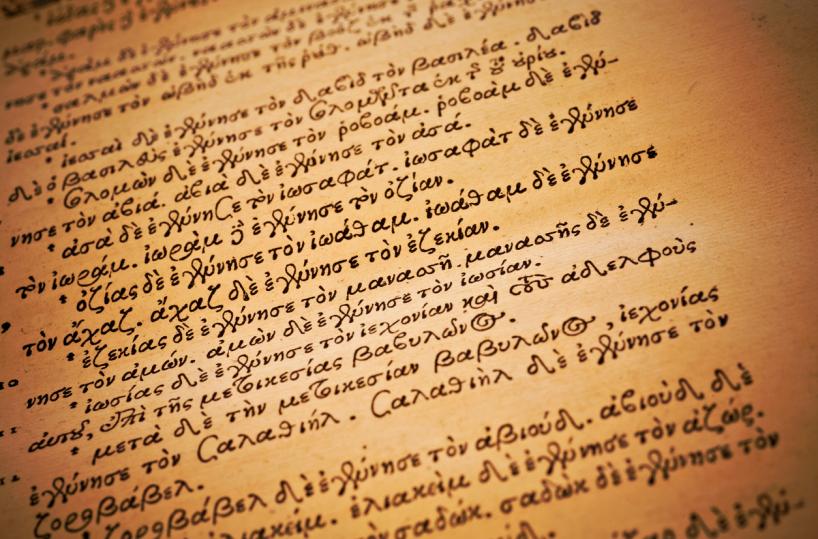 ἀράμ. ἀρὰμ δὲ ἐγέννησε τὸν
νησε τὸν ναασσών. ναασσὼν δὲ ἐγέννησε τὸν
σαλμὼν δὲ ἐγέννησε τὸν βοὸζ ἐκ τῆς
δὲ ἐγέννησε τὸν ὠβὴδ ἐκ τῆς ῥούθ. ὠβὴδ δὲ ἐγέννησε τὸν
ἰεσσαί.
ἰεσσαὶ δὲ ἐγέννησε τὸν δαβὶδ τὸν βασιλέα. δαβὶδ
δὲ ὁ βασιλεὺς ἐγέννησε τὸν σολομῶντα ἐκ τῆς τοῦ οὐρίου.
σολομὼν δὲ ἐγέννησε τὸν ῥοβοάμ. ῥοβοὰμ δὲ ἐγέν-
νησε τὸν ἀβιά. ἀβιὰ δὲ ἐγέννησε τὸν ἀσά.
ἀσὰ δὲ ἐγέννησε τὸν ἰωσαφάτ. ἰωσαφὰτ δὲ ἐγέννησε
τὸν ἰωράμ. ἰωρὰμ δὲ ἐγέννησε τὸν ὀζίαν.
ὀζίας δὲ ἐγέννησε τὸν ἰωάθαμ. ἰωάθαμ δὲ ἐγέννησε
τὸν ἄχαζ. ἄχαζ δὲ ἐγέννησε τὸν ἐζεκίαν.
ἐζεκίας δὲ ἐγέννησε τὸν μανασσῆ. μανασσῆς δὲ ἐγέν-
νησε τὸν ἀμών. ἀμὼν δὲ ἐγέννησε τὸν ἰωσίαν.
ἰωσίας δὲ ἐγέννησε τὸν ἰεχονίαν καὶ τοὺς ἀδελφοὺς
αὐτοῦ, ἐπὶ τῆς μετοικεσίας βαβυλῶνος.
μετὰ δὲ τὴν μετοικεσίαν βαβυλῶνος, ἰεχονίας
ἐγέννησε τὸν σαλαθιήλ. σαλαθιὴλ δὲ ἐγέννησε τὸν
ζοροβάβελ.
ζοροβάβελ δὲ ἐγέννησε τὸν ἀβιούδ. ἀβιοὺδ δὲ
ἐλιακείμ. ἐλιακεὶμ δὲ ἐγέννησε τὸν ἀζώρ.
τὸν σαδώκ. σαδὼκ δὲ ἐγέννησε τὸν
δὲ ἐγέν-